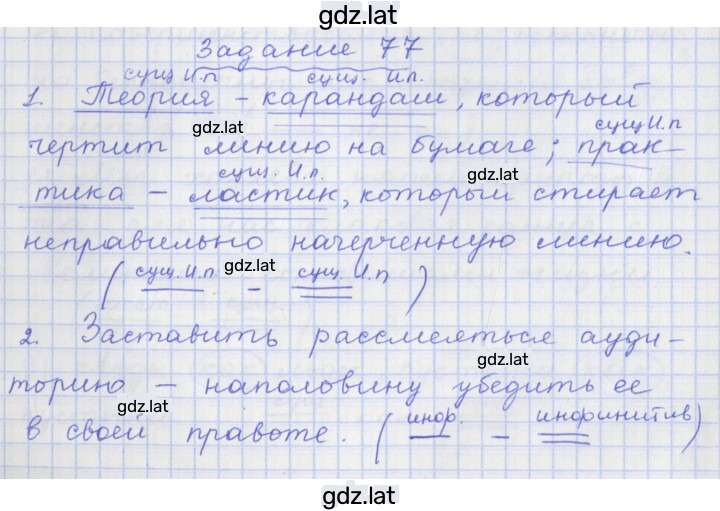 gdz.lat
Задание 77
сущ И.п сущ. И.п.
1. Теория – карандаш, который
gdz.lat сущ И.п
чертит линию на бумаге; прак-
сущ. И.п.
тика – ластик, который стирает
неправильно начерченную линию.
(сущ. И.п gdz.lat – сущ. И.п)
2. Заставить рассмеяться ауди-
gdz.lat
торию – наполовину убедить ее
gdz.lat
в своей правоте. (инф. – инфинитив)
gdz.lat